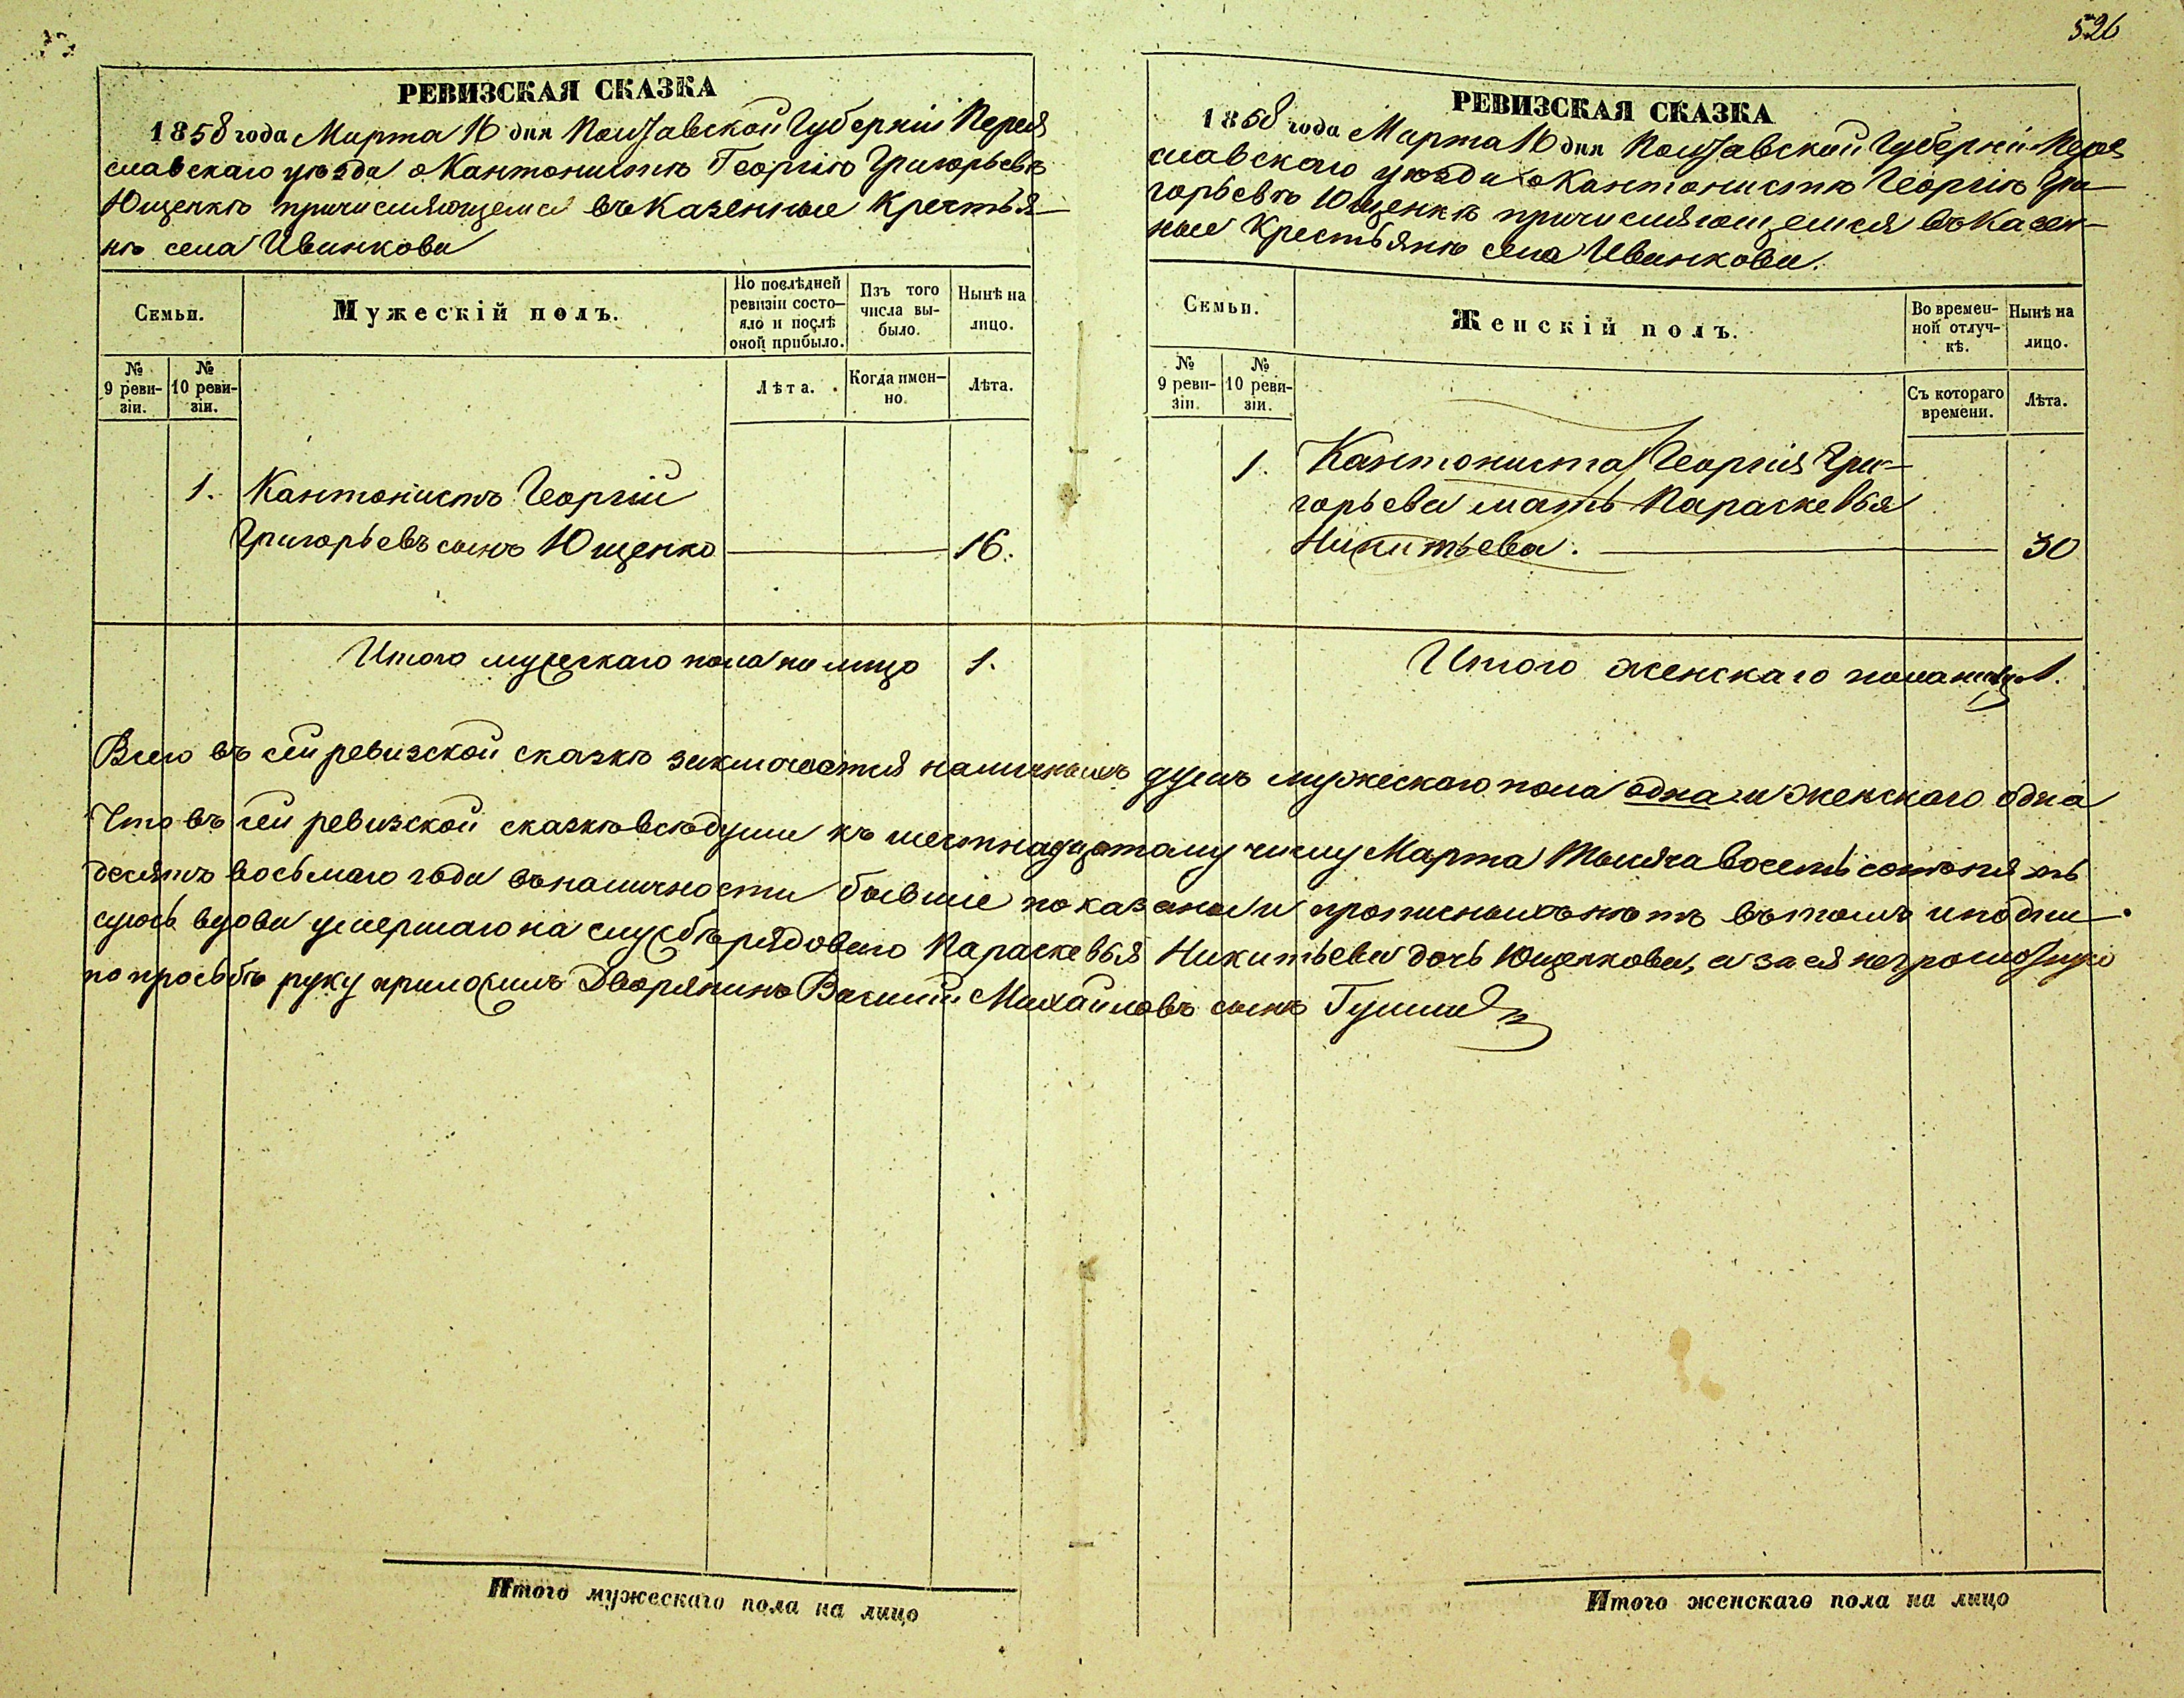 526
РЕВИЗСКАЯ СКАЗКА
1858 года Марта 16 дня Полтавской Губерніи Перея
славскаго уѣзда о Кантонистѣ Георгіѣ Григорьевѣ
Ющенкѣ причисляющемся въ Казенные Крестья-
нѣ села Иванкова
Семьи.
Мужескій полъ.
По послѣдней
ревизіи состо-
яло и послѣ
оной прибыло.
Изъ того
числа вы-
было.
Нынѣ на
лицо.
№
9 реви-
зіи.
№
10 реви-
зіи.
Лѣта.
Когда имен-
но.
Лѣта.
1. Кантонистъ Георгій
Григорьевъ сынъ Ющенко 16.
Итого мужескаго пола на лицо 1.
РЕВИЗСКАЯ СКАЗКА
1858 года Марта 16 дня Полтавской Губерніи Перея
славскаго уѣзда о Кантонистѣ Георгіѣ Гри-
горьевѣ Ющенкѣ причисляющемся въ Казен-
ные Крестьянѣ села Иванкова.
Семьи.
Женскій полъ.
Во времен-
ной отлуч-
кѣ.
Нынѣ на
лицо.
№
9 реви-
зіи.
№
10 реви-
зіи.
Съ котораго
времени.
Лѣта.
1. Кантониста Георгія Гри-
горьева мать Параскевья
Никитьева. 30
Итого женскаго пола на лицо 1.
Всего въ сей ревизской сказкѣ заключается наличныхъ душъ мужескаго пола одна и женскаго одна
Что въ сей ревизской сказкѣ всѣ души къ шестнадцатому числу Марта тысяча восемь сотъ пять
десятъ восьмаго года въ наличности бывшіе показаны и прописныхъ нѣтъ въ томъ и подпи-
суюсь вдова умершаго на службѣ рядоваго Параскевья Никитьева дочь Ющенкова, а за ея неграмотную
по просьбѣ руку приложилъ Дворянинъ Василій Михайловъ сынъ
Итого мужескаго пола на лицо
Итого женскаго пола на лицо